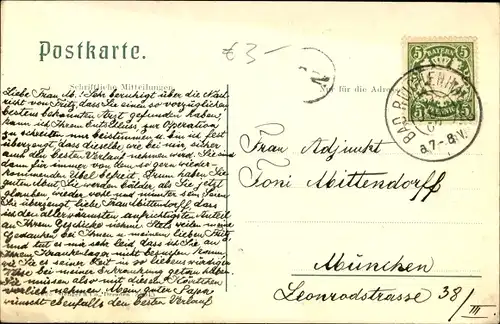 Postkarte.
€ 3-
Schriftliche Mitteilungen
Nur für die Adresse
BAYERN
5 5
BAD REICHENHALL
a.7-8.V.
Liebe Frau M.! Sehr beruhigt über die Nach
richt von Fritz, dass Sie einen so vorzüglichen
bestens bekannten Arzt gefunden haben,
kann ich Ihrem Entschluss, zur Operation
zu schreiten nur beistimmen u. bin ich fest
überzeugt, dass dieselbe wie bei mir sicher
auch den besten Verlauf nehmen wird. Sie sind
dann für immer von dem so gern wieder-
kommenden Übel befreit. Drum haben Sie
guten Mut, Sie werden bälder als Sie jetzt
glauben, wieder wohl und munter sein. Seien
Sie überzeugt, liebe Frau Mittendorff, dass
ich den allerwärmsten aufrichtigsten Anteil
an Ihrem Geschicke nehme. Stets weilen meine
Gedanken bei Ihnen u. meinem lieben Fritz,
und tut es mir sehr leid, dass ich Sie an
Ihrem Krankenlager nicht besuchen kann,
wie Sie es seiner Zeit in so liebenswürdiger
Weise bei meiner Erkrankung getan haben.
Sie müssen also mit diesen Kärtchen
vorlieb nehmen. Mein guter Papa
wünscht ebenfalls den besten Verlauf
Frau Adjunkt
Toni Mittendorff
München
Leonrodstrasse 38/III.